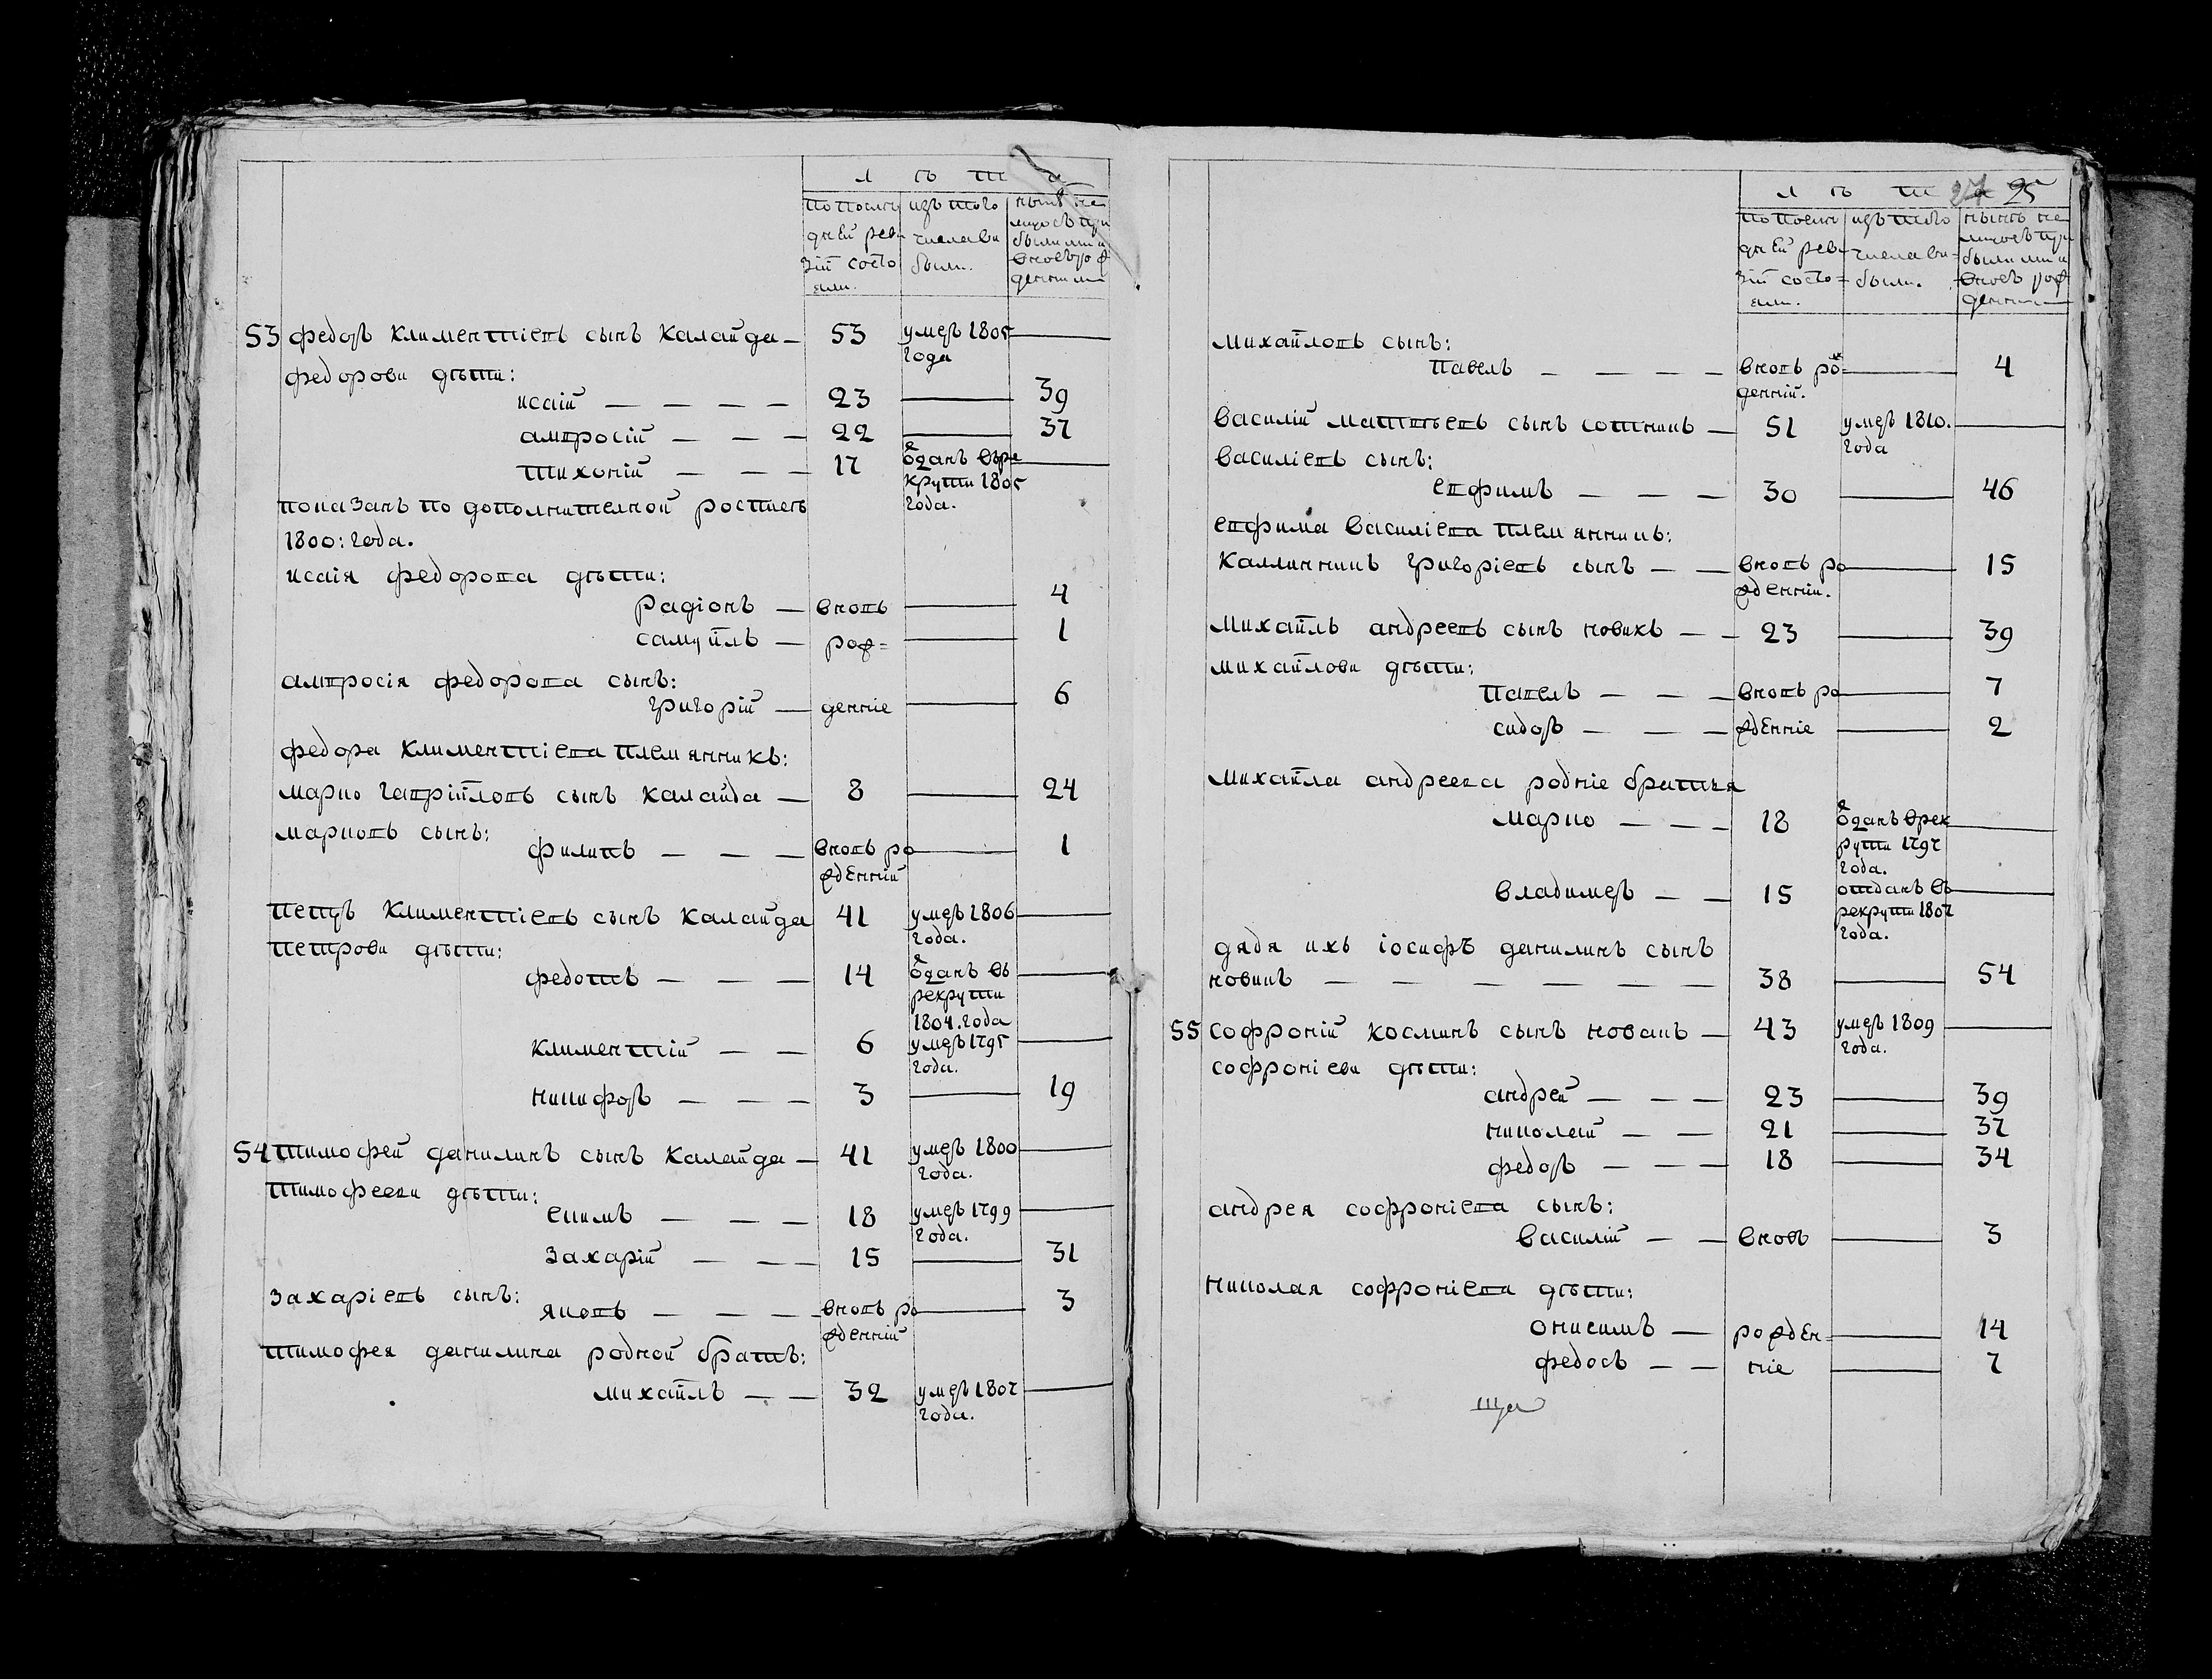 лѣта
по послѣ изъ того нынѣ на
дней реви числа вы лицо съ при
зіи состо были. былыми и
яли. вновь рож
денными
53 федоръ климентіевъ сынъ калайда — 53 умеръ 1805 —
года
федорови дѣти:
исаій — — — — 23 — 39
амвросій — — — 22 — 37
тихоній — — — 17 отданъ въ ре —
крути 1805
года.
показанъ по дополнителной росписѣ
1800: года.
исаія федорова дѣти:
радіонъ — вновь — 4
самуйлъ — рож= — 1
амвросія федорова сынъ:
григорій — денніе — 6
федора климентіева племянникъ:
марко гаврійловъ сынъ калайда — 8 — 24
марковъ сынъ:
филипъ — — — вновь ро — 1
жденній
петръ климентіевъ сынъ калайда 41 умеръ 1806 —
года.
петрови дѣти:
федотъ — — — 14 отданъ въ —
рекрути
1804. года
климентій — — 6 умеръ 1795 —
года.
никифоръ — — — 3 — 19
54 тимофей данилинъ сынъ калайда — 41 умеръ 1800 —
года.
тимофееви дѣти:
екимъ — — — 18 умеръ 1799 —
года.
захарій — — — 15 — 31
захаріевъ сынъ:
яковъ — — — — вновь ро — 3
жденній
тимофея данилина родной братъ:
михайлъ — — 32 умеръ 1807 —
года.
лѣта 25
по послѣ изъ того нынѣ на
дней реви числа вы= лицо съ при
зіи состо= были. былыми и
яли. вновь рож
денными
михайловъ сынъ:
павелъ — — — — вновь рож= — 4
денній.
василій матвѣевъ сынъ сотникъ — 51 умеръ 1810. —
года
василіевъ сынъ:
евфимъ — — — 30 — 46
евфима василіева племянникъ:
каллинникъ григоріевъ сынъ — — вновь ро — 15
жденній.
михайлъ андреевъ сынъ новикъ — — 23 — 39
михайлови дѣти:
павелъ — — — вновь ро — 7
сидоръ — — — жденніе — 2
михайла андреева родніе братья
марко — — — 18 отданъ врек —
рути 1797
года.
владимеръ — — 15 отданъ въ —
рекрути 1807
года.
дядя ихъ іосифъ данилинъ сынъ
новикъ — — — — — — 38 — 54
55 софроній косминъ сынъ новакъ — 43 умеръ 1809 —
года.
софроніеви дѣти:
андрей — — — 23 — 39
николай — — 21 — 37
федоръ — — — 18 — 34
андрея софроніева сынъ:
василій — — вновь — 3
николая софроніева дѣти:
онисимъ — рожден= — 14
федосъ — — ніе — 7